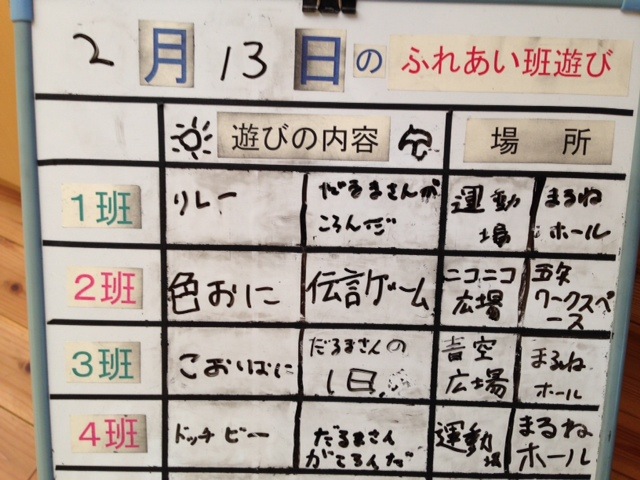 2月13日のふれあい班遊び
遊びの内容 場所
1班 リレー だるまさんがころんだ 運動場 まるねホール
2班 色おに 伝言ゲーム ニコニコ広場 五年ワークスペース
3班 こおりおに だるまさんの1日 青空広場 まるねホール
4班 ドッチビー だるまさんがころんだ 運動場 まるねホール